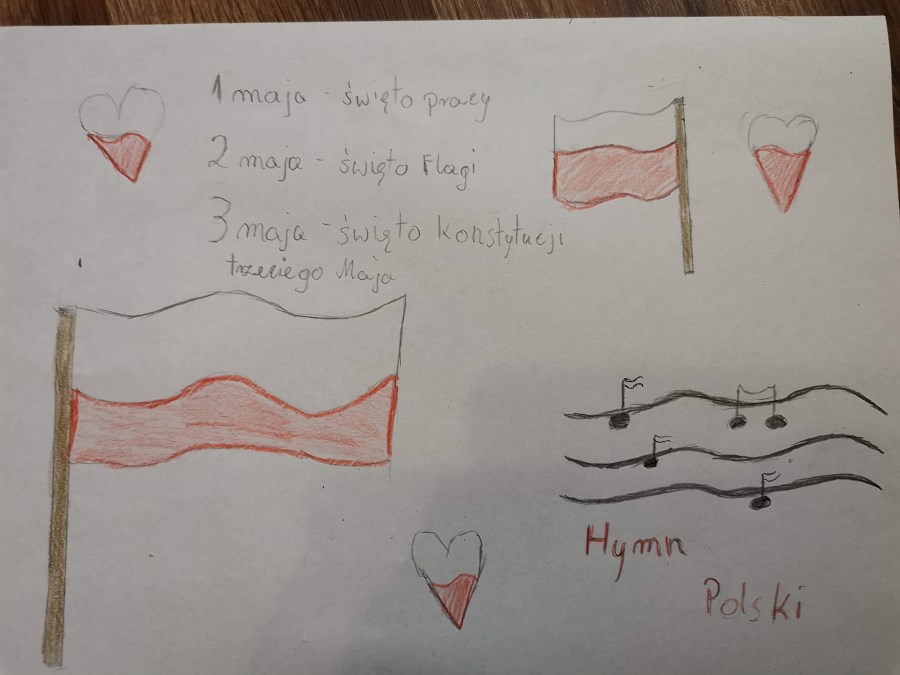 1 maja - święto pracy
2 maja - święto Flagi
3 maja - święto konstytucji
trzeciego Maja
Hymn
Polski